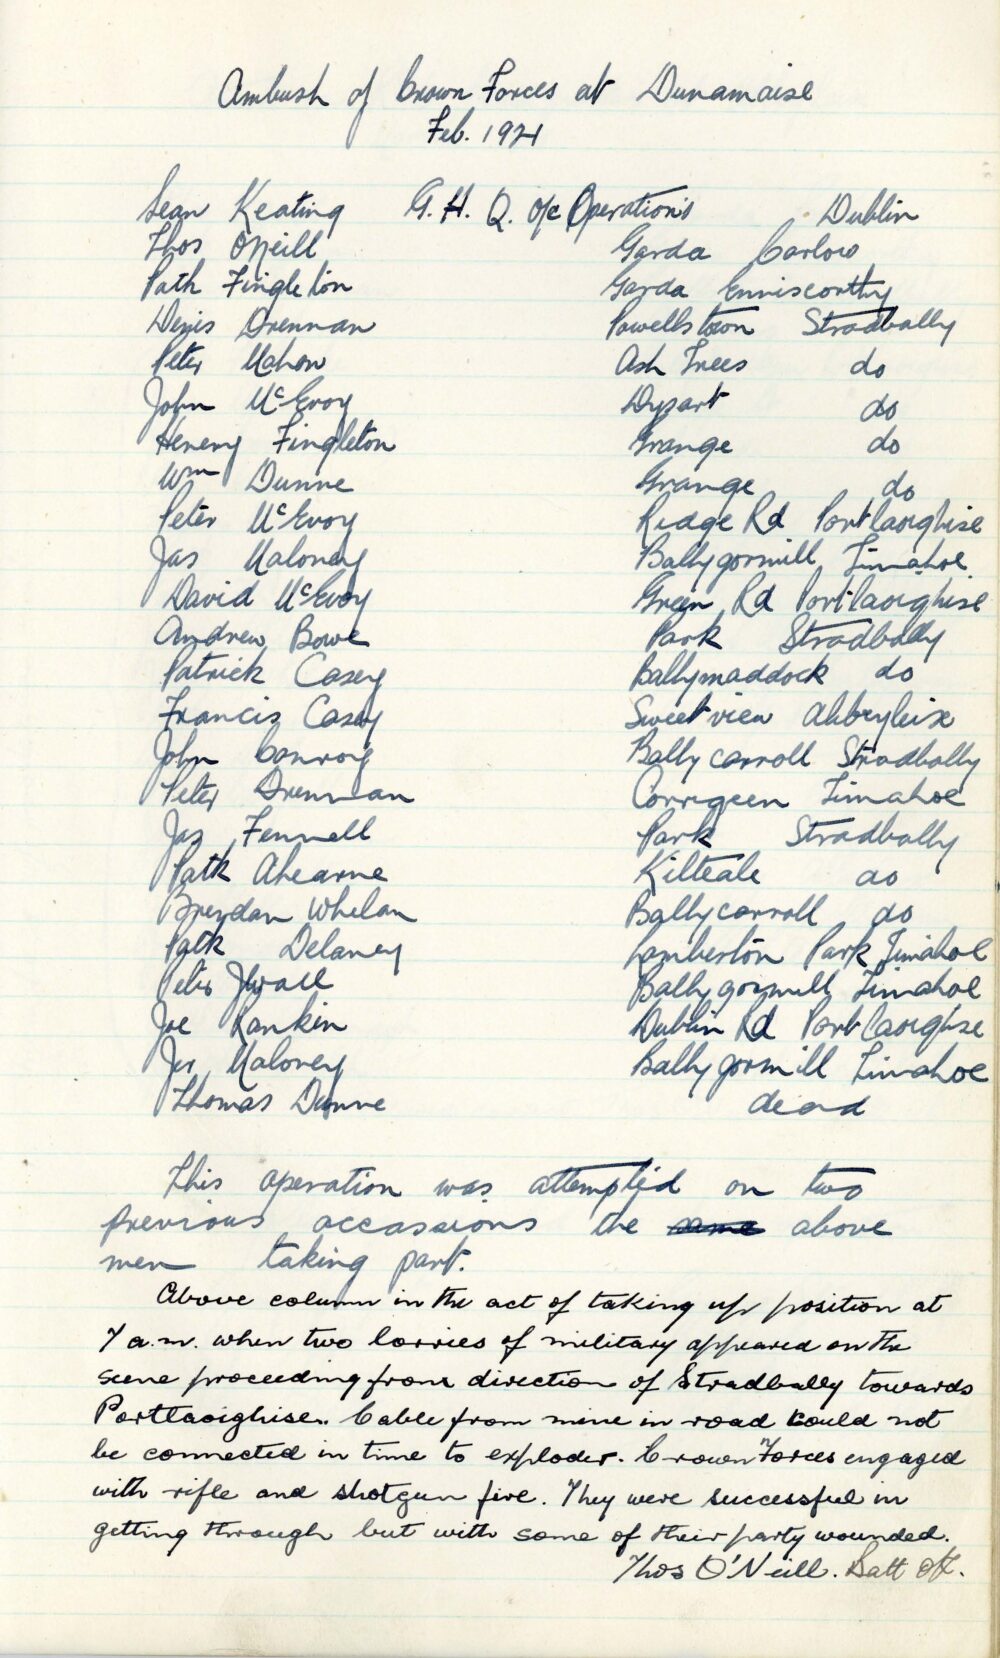 Ambush of Crown Forces at Dunamaise
Feb. 1921
Sean Keating G.H.Q. O/c Operations Dublin
Thos O'Neill Garda Carlow
Patk Fingleton Garda Enniscorthy
Denis Drennan Powellstown Stradbally
Peter Mahon Ash Trees do
John McEvoy Dysart do
Henery Fingleton Grange do
Wm Dunne Grange do
Peter McEvoy Ridge Rd Portlaoighise
Jas Maloney Ballygormill Timahoe
David McEvoy Green Rd Portlaoighise
Andrew Bowe Park Stradbally
Patrick Casey Ballymaddock do
Francis Casey Sweet view Abbeyleix
John Conroy Ballycarroll Stradbally
Peter Drennan Corrigeen Timahoe
Jas Fennell Park Stradbally
Patk Ahearne Kilteale do
Brendan Whelan Ballycarroll do
Patk Delaney Lamberton Park Timahoe
Peter Ballygormill Timahoe
Joe Rankin Dublin Rd Portlaoighse
Jer Maloney Ballygormill Timahoe
Thomas Dunne dead
This operation was attempted on two
previous occassions the same above
men taking part.
Above column in the act of taking up position at
7 a.m. when two lorries of military appeared on the
scene proceeding from direction of Stradbally towards
Portlaoighise. Cable from mine in road could not
be connected in time to exploder. Crown Forces engaged
with rifle and shotgun fire. They were successful in
getting through but with some of their party wounded.
Thos O'Neill. Batt